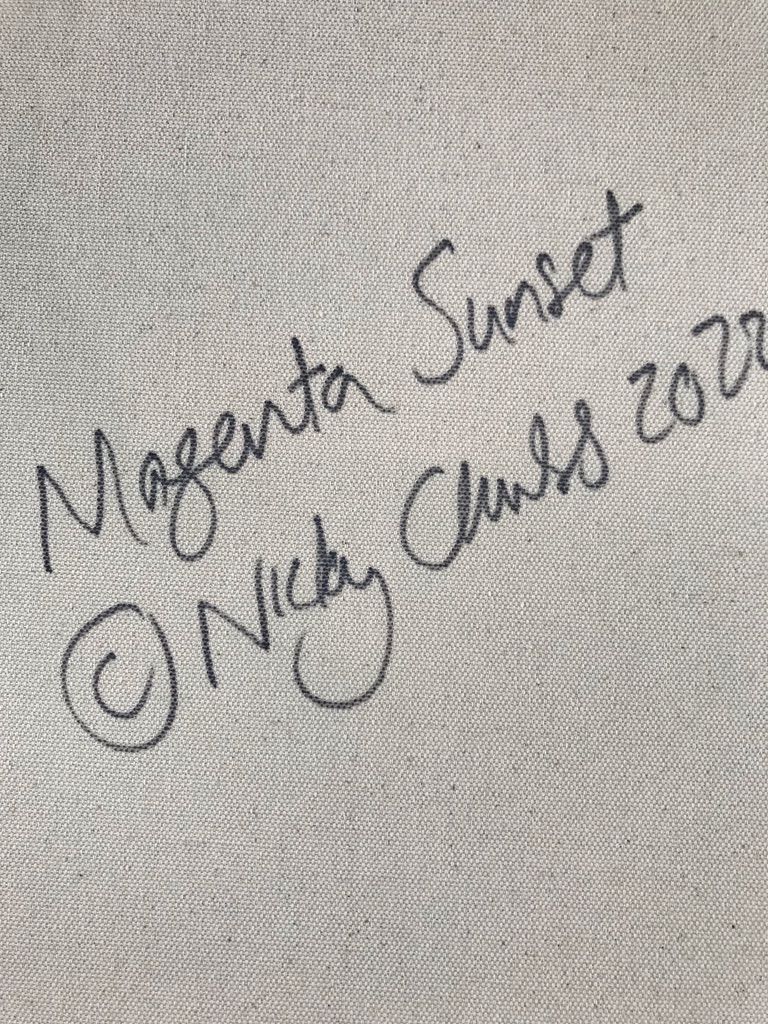 Magenta Sunset
© Nicky Chubb 2022